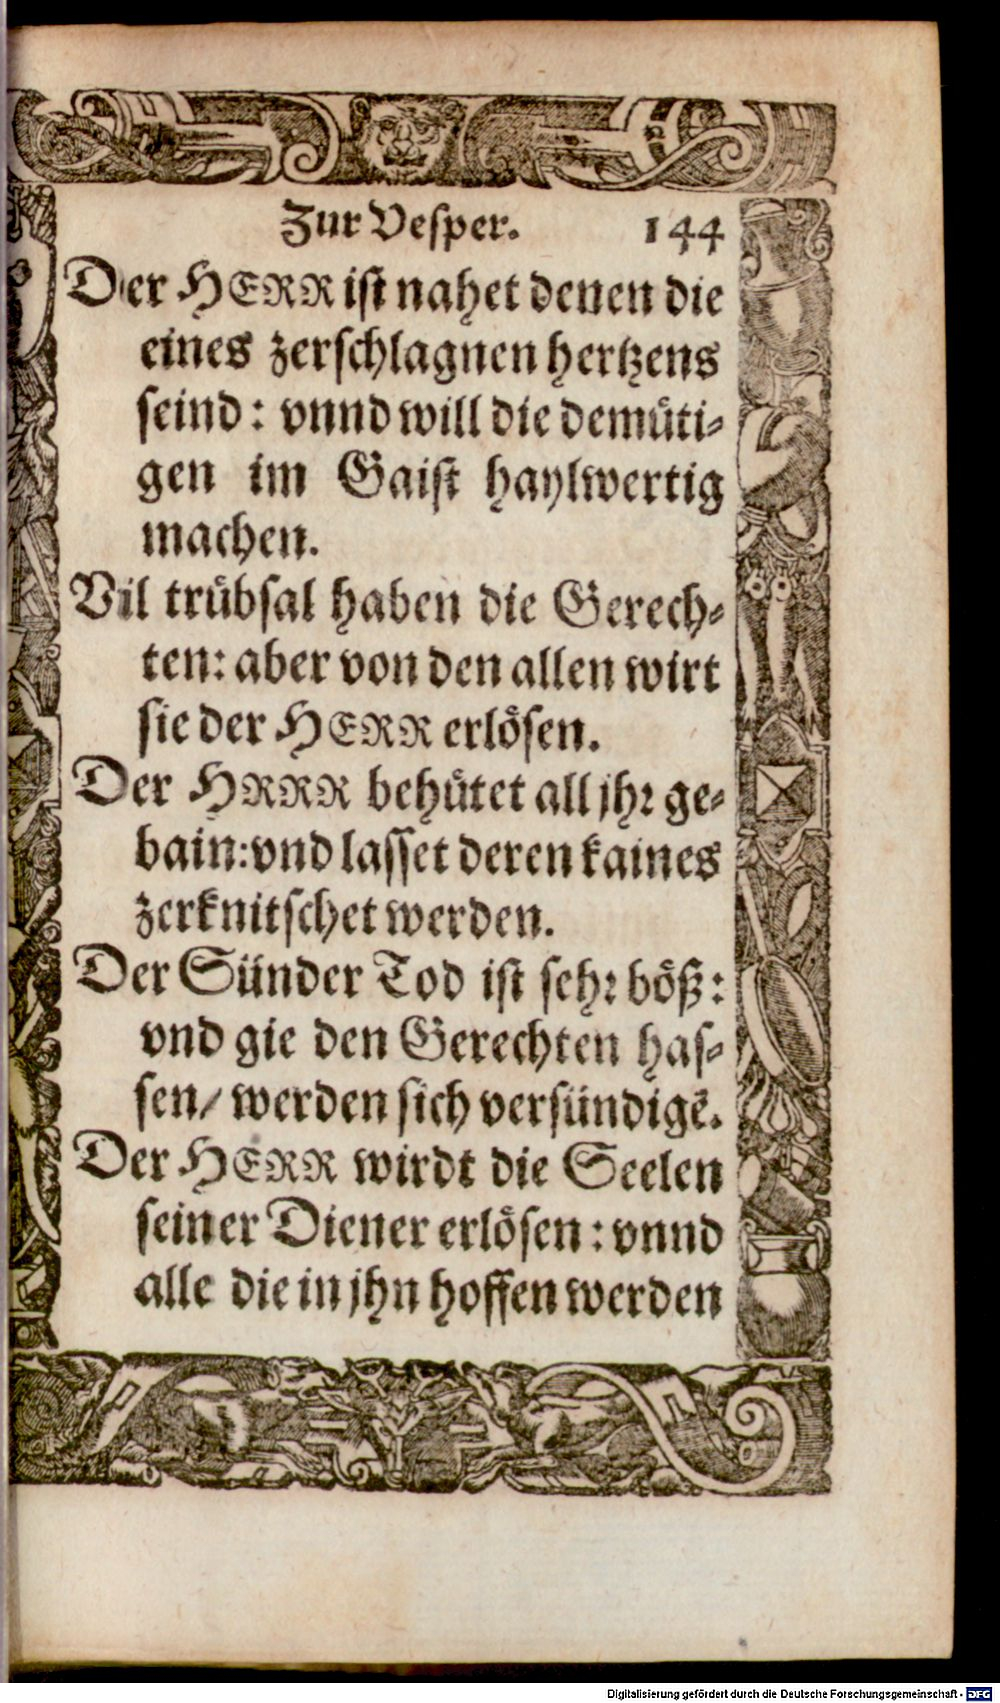 Zur Vesper. 144
Der HERR ist nahet denen die
eines zerschlagnen hertzens
seind: vnnd will die demuͤti-
gen im Gaist haylwertig
machen.
Vil truͤbsal haben die Gerech-
ten: aber von den allen wirt
sie der HERR erloͤsen.
Der HRRR behuͤtet all jhr ge-
bain: vnd lasset deren kaines
zerknitschet werden.
Der Sünder Tod ist sehr boͤß:
vnd gie den Gerechten has-
sen/ werden sich versündigẽ.
Der HERR wirdt die Seelen
seiner Diener erloͤsen: vnnd
alle die in jhn hoffen werden
Digitalisierung gefördert durch die Deutsche Forschungsgemeinschaft - DFG